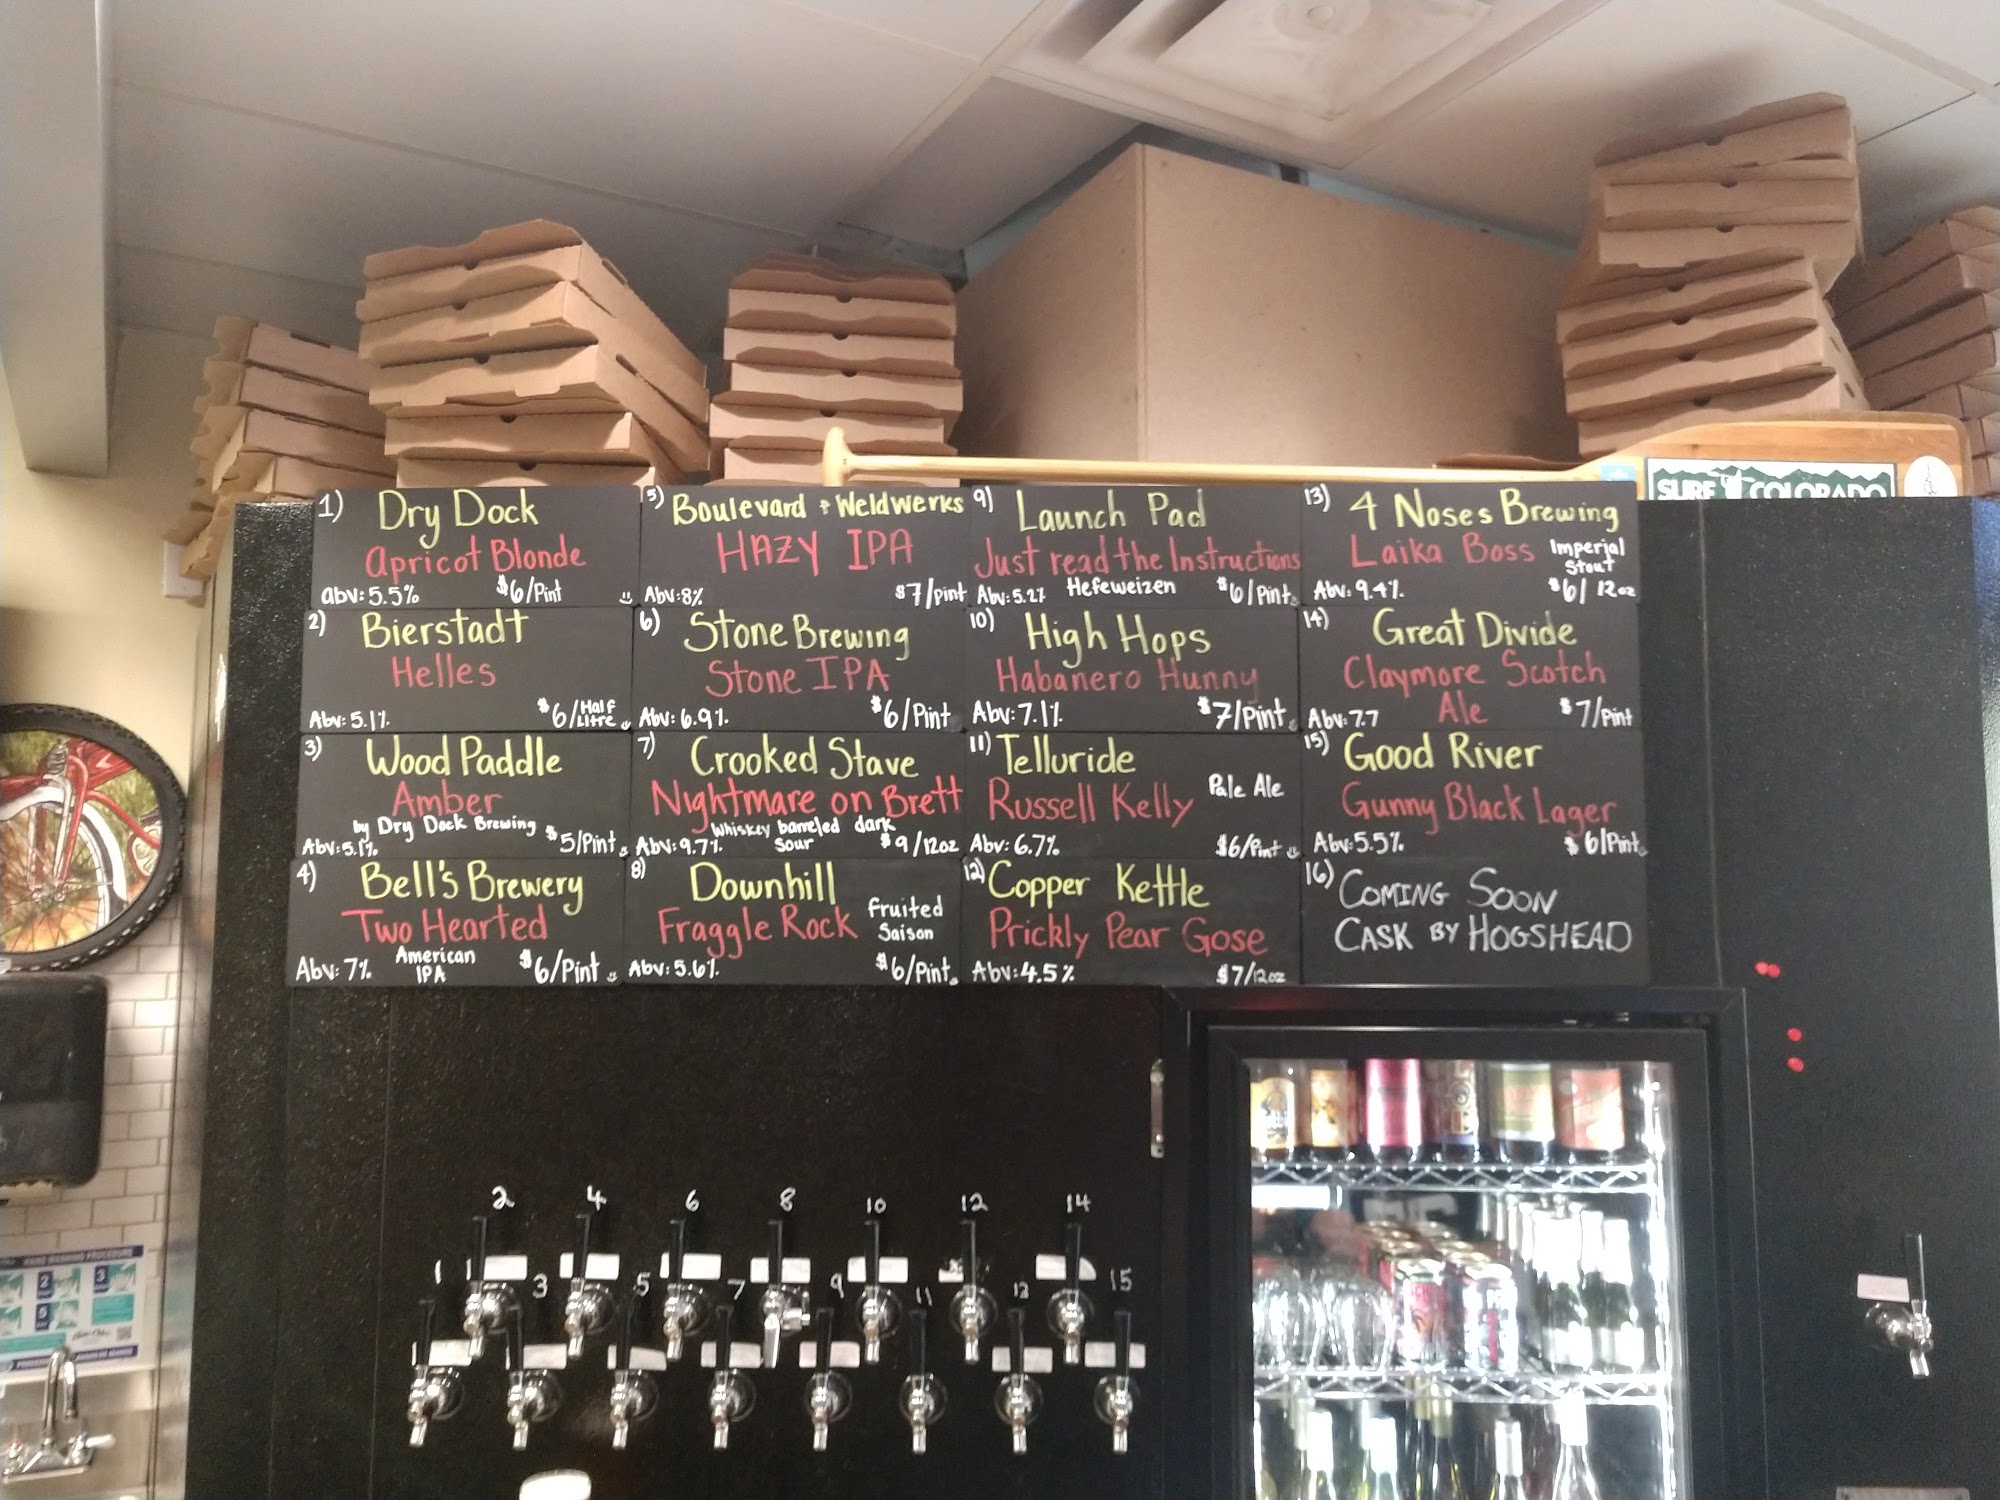 1) Dry Dock
Apricot Blonde
abv: 5.5% $6/Pint
2) Bierstadt
Helles
Abv: 5.1% $6/Half Litre
3) Wood Paddle
Amber
by Dry Dock Brewing
Abv: 5.1% $5/Pint
4) Bell's Brewery
Two Hearted
American IPA
Abv: 7% $6/Pint
5) Boulevard + Weldwerks
HAZY IPA
Abv: 8% $7/pint
6) Stone Brewing
Stone IPA
Abv: 6.9% $6/Pint
7) Crooked Stave
Nightmare on Brett
Whiskey barreled dark sour
Abv: 9.7% $9/12oz
8) Downhill
Fraggle Rock
Fruited Saison
Abv: 5.6% $6/Pint
9) Launch Pad
Just read the Instructions
Abv: 5.2% Hefeweizen $6/Pint
10) High Hops
Habanero Hunny
Abv: 7.1% $7/Pint
11) Telluride
Russell Kelly
Pale Ale
Abv: 6.7% $6/Pint
12) Copper Kettle
Prickly Pear Gose
Abv: 4.5% $7/12oz
13) 4 Noses Brewing
Laika Boss Imperial Stout
Abv: 9.4% $6/12oz
14) Great Divide
Claymore Scotch
Ale
Abv: 7.7 $7/Pint
15) Good River
Gunny Black Lager
Abv: 5.5% $6/Pint
16) COMING SOON
CASK BY HOGSHEAD
SURF COLORADO
2 4 6 8 10 12 14
1 3 5 7 9 11 13 15
HAND WASHING PROCEDURE
2 3
5